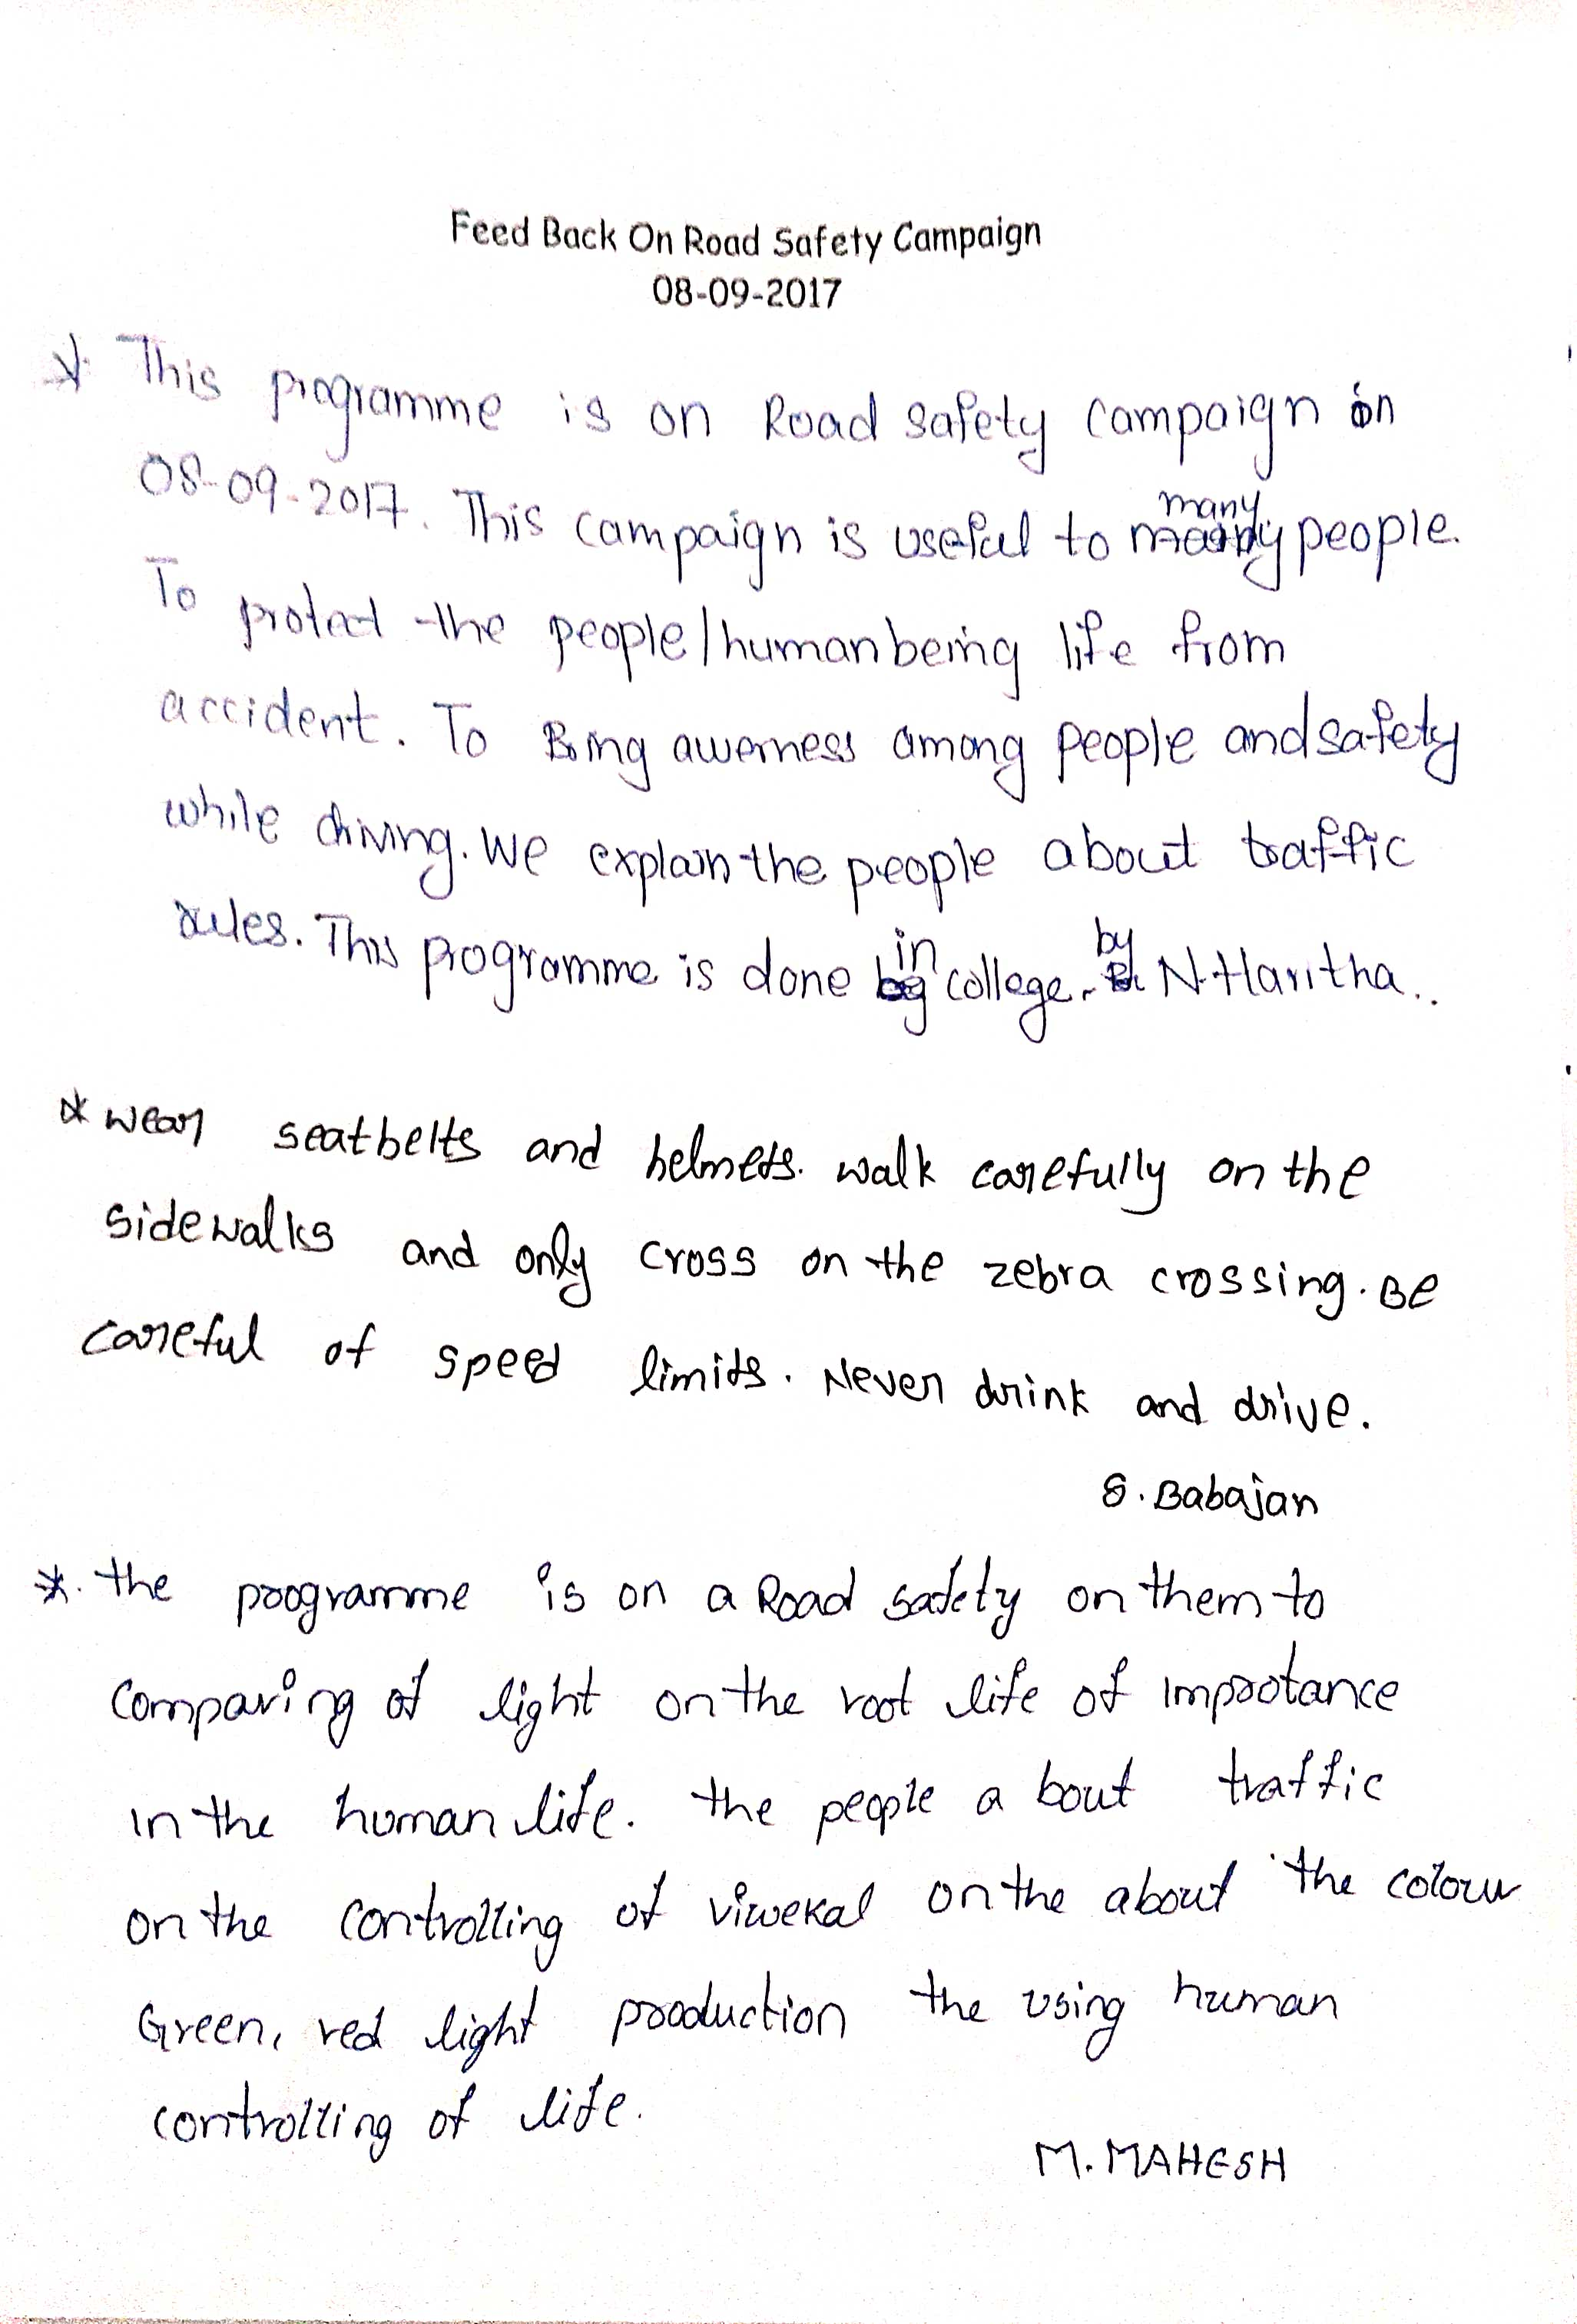 Feed Back On Road Safety Campaign
08-09-2017
* This programme is on Road safety campaign on
08-09-2017. This campaign is useful to many people.
To protect the people/humanbeing life from
accident. To Bring awerness among people and safety
while driving. We explain the people about traffic
rules. This programme is done in college. by N. Haritha..
* wear seatbelts and helmets. walk carefully on the
sidewalks and only cross on the zebra crossing. Be
careful of speed limits. Never drink and drive.
S. Babajan
*. the programme is on a Road safety on them to
comparing of light on the root life of improtance
in the human life. the people a bout traffic
on the controlling of viwekal on the about the colour
Green, red light production the using human
controlling of life.
M. MAHESH